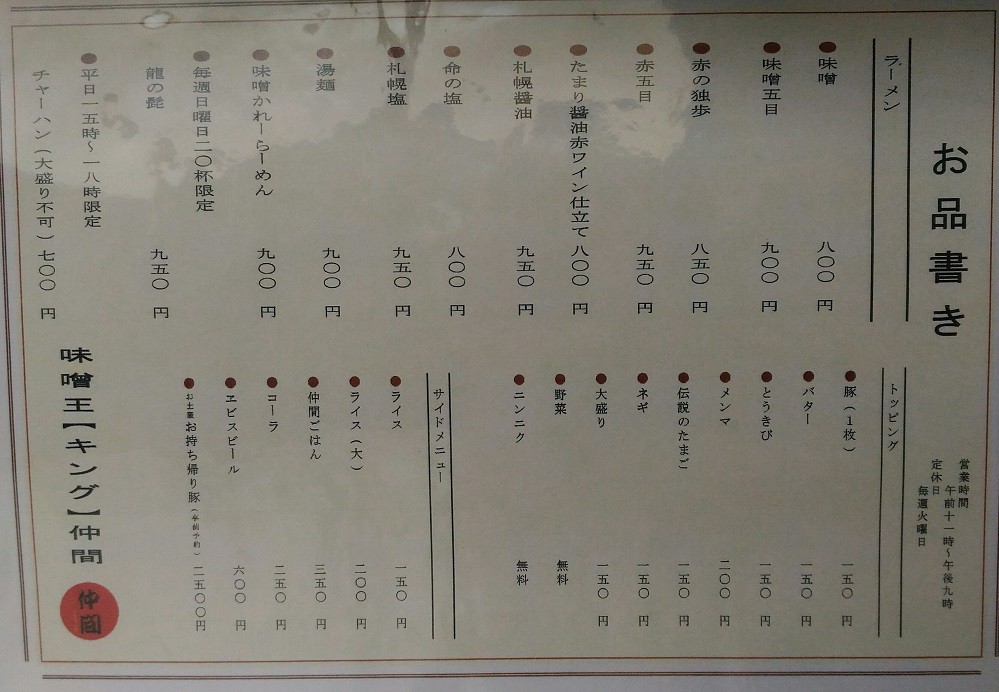 お品書き
営業時間
午前十一時～午後九時
定休日
毎週火曜日
ラーメン
味噌 八〇〇 円
味噌五目 九〇〇 円
赤の独歩 八五〇 円
赤五目 九五〇 円
たまり醤油赤ワイン仕立て 八〇〇 円
札幌醤油 九五〇 円
命の塩 八〇〇 円
札幌塩 九五〇 円
湯麺 九〇〇 円
味噌かれーらーめん 九〇〇 円
毎週日曜日二〇杯限定
龍の髭 九五〇 円
平日一五時～一八時限定
チャーハン（大盛り不可）七〇〇 円
トッピング
豚（１枚） 一五〇 円
バター 一五〇 円
とうきび 一五〇 円
メンマ 二〇〇 円
伝説のたまご 一五〇 円
ネギ 一五〇 円
大盛り 一五〇 円
野菜 無料
ニンニク 無料
サイドメニュー
ライス 一五〇 円
ライス（大） 二〇〇 円
仲間ごはん 三五〇 円
コーラ 二五〇 円
ヱビスビール 六〇〇 円
お土産お持ち帰り豚（事前予約） 二五〇〇円
味噌王【キング】仲間
仲間